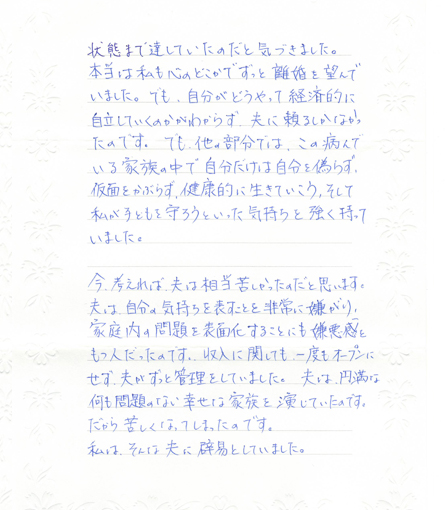 状態まで達していたのだと気づきました。
本当は私も心のどこかでずっと離婚を望んで
いました。でも、自分がどうやって経済的に
自立していくのかがわからず、夫に頼るしかなかっ
たのです。でも、他の部分では、この病んで
いる家族の中で自分だけは自分を偽らず、
仮面をかぶらず、健康的に生きていこう、そして
私が子どもを守ろうといった気持ちを強く持って
いました。
今、考えれば、夫は相当苦しかったのだと思います。
夫は、自分の気持ちを表すことを非常に嫌がり、
家庭内の問題を表面化することにも嫌悪感を
もつ人だったのです。収入に関しても一度もオープンに
せず、夫がずっと管理をしていました。夫は、円満な
何も問題のない幸せな家族を演じていたのです。
だから苦しくなってしまったのです。
私は、そんな夫に辟易としていました。